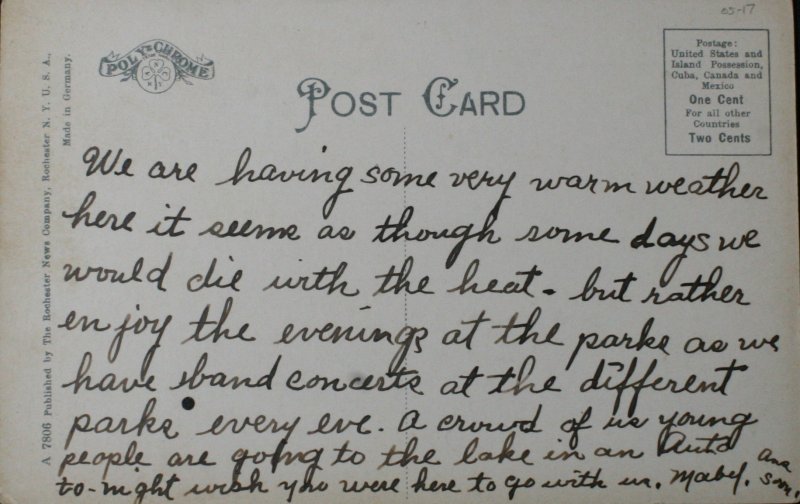 05-17
POLY-CHROME
POST CARD
Postage:
United States and
Island Possession,
Cuba, Canada and
Mexico
One Cent
For all other
Countries
Two Cents
A 7806 Published by The Rochester News Company, Rochester N. Y. U. S. A.,
Made in Germany.
We are having some very warm weather
here it seems as though some days we
would die with the heat - but rather
enjoy the evenings at the parks as we
have band concerts at the different
parks every eve. A crowd of us young
people are going to the lake in an Auto
to-night wish you were here to go with us. Mabel.